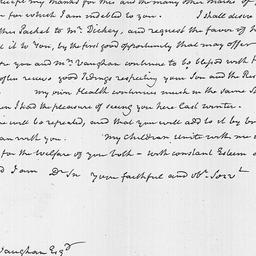 my thanks for this and the many other marks of
for which I am indebted to you. I shall desire
this Packet to Mr. Dickey, and request the favor of h
it to you, by the first good opportunity that may offer
you and Mrs. Vaughan continue to be blessed with
receive good tidings respecting your Son and the
my own Health continues much in the same S
when I had the pleasure of seeing you here last winter.
will be repeated, and that you will add to it by br
with you. My Children unite with me
for the welfare of you both – with constant Esteem a
I am Dr. Sir Your faithful and Ob. Servt.
Vaughan Esqr